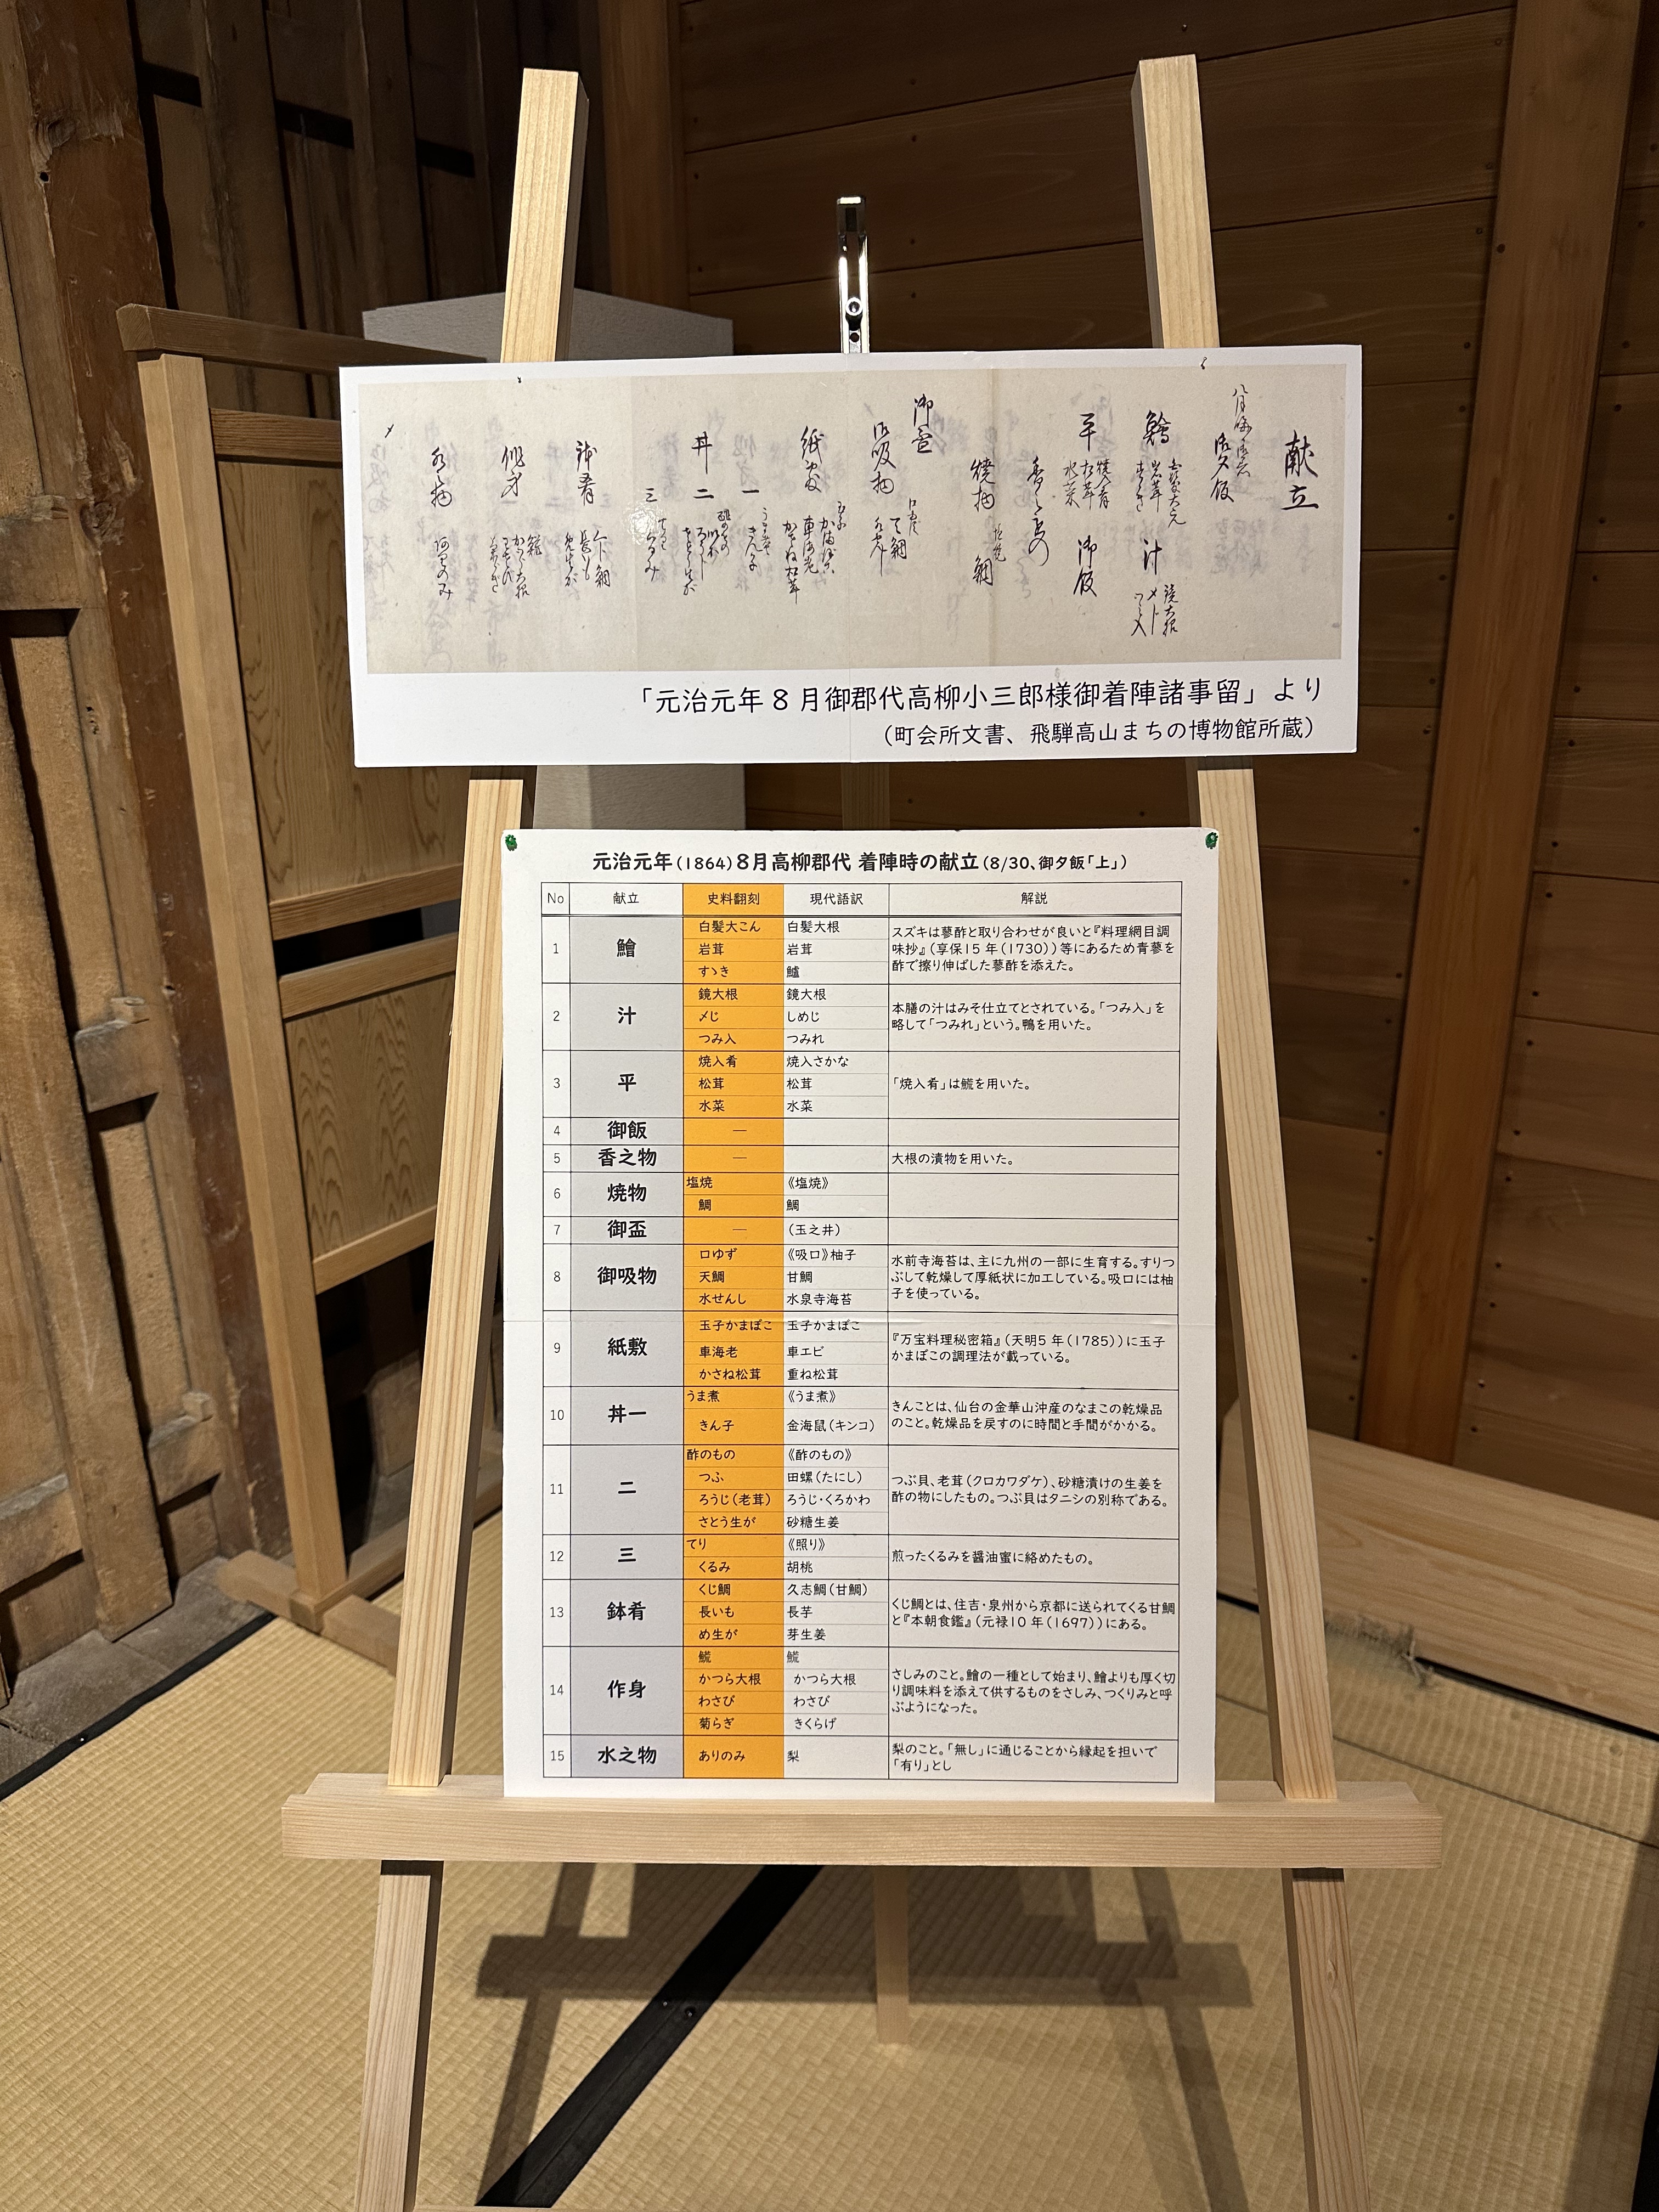 献立
御夕飯
鱠
汁
平
御飯
焼物
鯛
御盃
御吸物
紙敷
丼
一
二
三
鉢肴
作身
「元治元年8月御郡代高柳小三郎様御着陣諸事留」より
(町会所文書、飛騨高山まちの博物館所蔵)
元治元年(1864)8月高柳郡代 着陣時の献立(8/30、御夕飯「上」)
No 献立 史料翻刻 現代語訳 解説
1 鱠
白髪大こん 白髪大根
岩茸 岩茸
すゝき 鱸
スズキは蓼酢と取り合わせが良いと『料理網目調
味抄』(享保15年(1730))等にあるため青蓼を
酢で擦り伸ばした蓼酢を添えた。
2 汁
鏡大根 鏡大根
〆じ しめじ
つみ入 つみれ
本膳の汁はみそ仕立てとされている。「つみ入」を
略して「つみれ」という。鴨を用いた。
3 平
焼入肴 焼入さかな
松茸 松茸
水菜 水菜
「焼入肴」は鯇を用いた。
4 御飯 ―
5 香之物 ―
大根の漬物を用いた。
6 焼物
塩焼 《塩焼》
鯛 鯛
7 御盃 ― (玉之井)
8 御吸物
口ゆず 《吸口》柚子
天鯛 甘鯛
水せんし 水泉寺海苔
水前寺海苔は、主に九州の一部に生育する。すりつ
ぶして乾燥して厚紙状に加工している。吸口には柚
子を使っている。
9 紙敷
玉子かまぼこ 玉子かまぼこ
車海老 車エビ
かさね松茸 重ね松茸
『万宝料理秘密箱』(天明5年(1785))に玉子
かまぼこの調理法が載っている。
10 丼一
うま煮 《うま煮》
きん子 金海鼠(キンコ)
きんことは、仙台の金華山沖産のなまこの乾燥品
のこと。乾燥品を戻すのに時間と手間がかかる。
11 二
酢のもの 《酢のもの》
つふ 田螺(たにし)
ろうじ(老茸) ろうじ・くろかわ
さとう生が 砂糖生姜
つぶ貝、老茸(クロカワダケ)、砂糖漬けの生姜を
酢の物にしたもの。つぶ貝はタニシの別称である。
12 三
てり 《照り》
くるみ 胡桃
煎ったくるみを醤油蜜に絡めたもの。
13 鉢肴
くじ鯛 久志鯛(甘鯛)
長いも 長芋
め生が 芽生姜
くじ鯛とは、住吉・泉州から京都に送られてくる甘鯛
と『本朝食鑑』(元禄10年(1697))にある。
14 作身
鯇 鯇
かつら大根 かつら大根
わさび わさび
菊らぎ きくらげ
さしみのこと。鱠の一種として始まり、鱠よりも厚く切
り調味料を添えて供するものをさしみ、つくりみと呼
ぶようになった。
15 水之物
ありのみ 梨
梨のこと。「無し」に通じることから縁起を担いで
「有り」とし